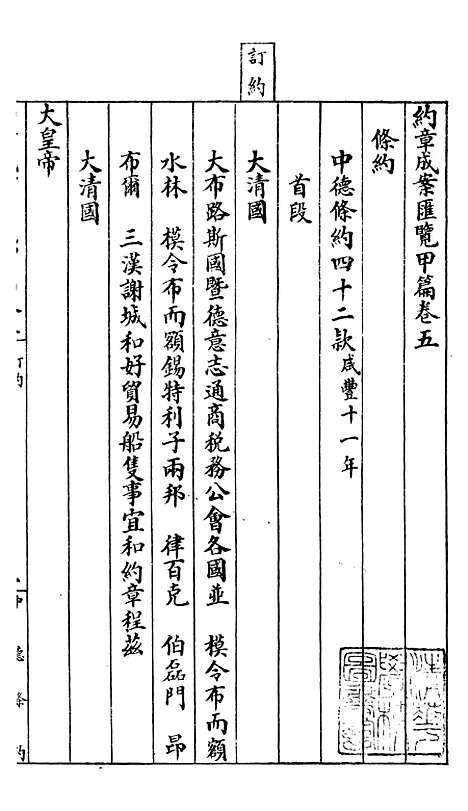 訂約
約章成案匯覽甲篇卷五
條約
中德條約四十二款咸豐十一年
首段
大清國
大布路斯國暨德意志通商稅務公會各國並 模令布而額
水林 模令布而額錫特利子兩邦 律百克 伯磊門 昂
布爾 三漢謝城和好貿易船隻事宜和約章程茲
大清國
大皇帝